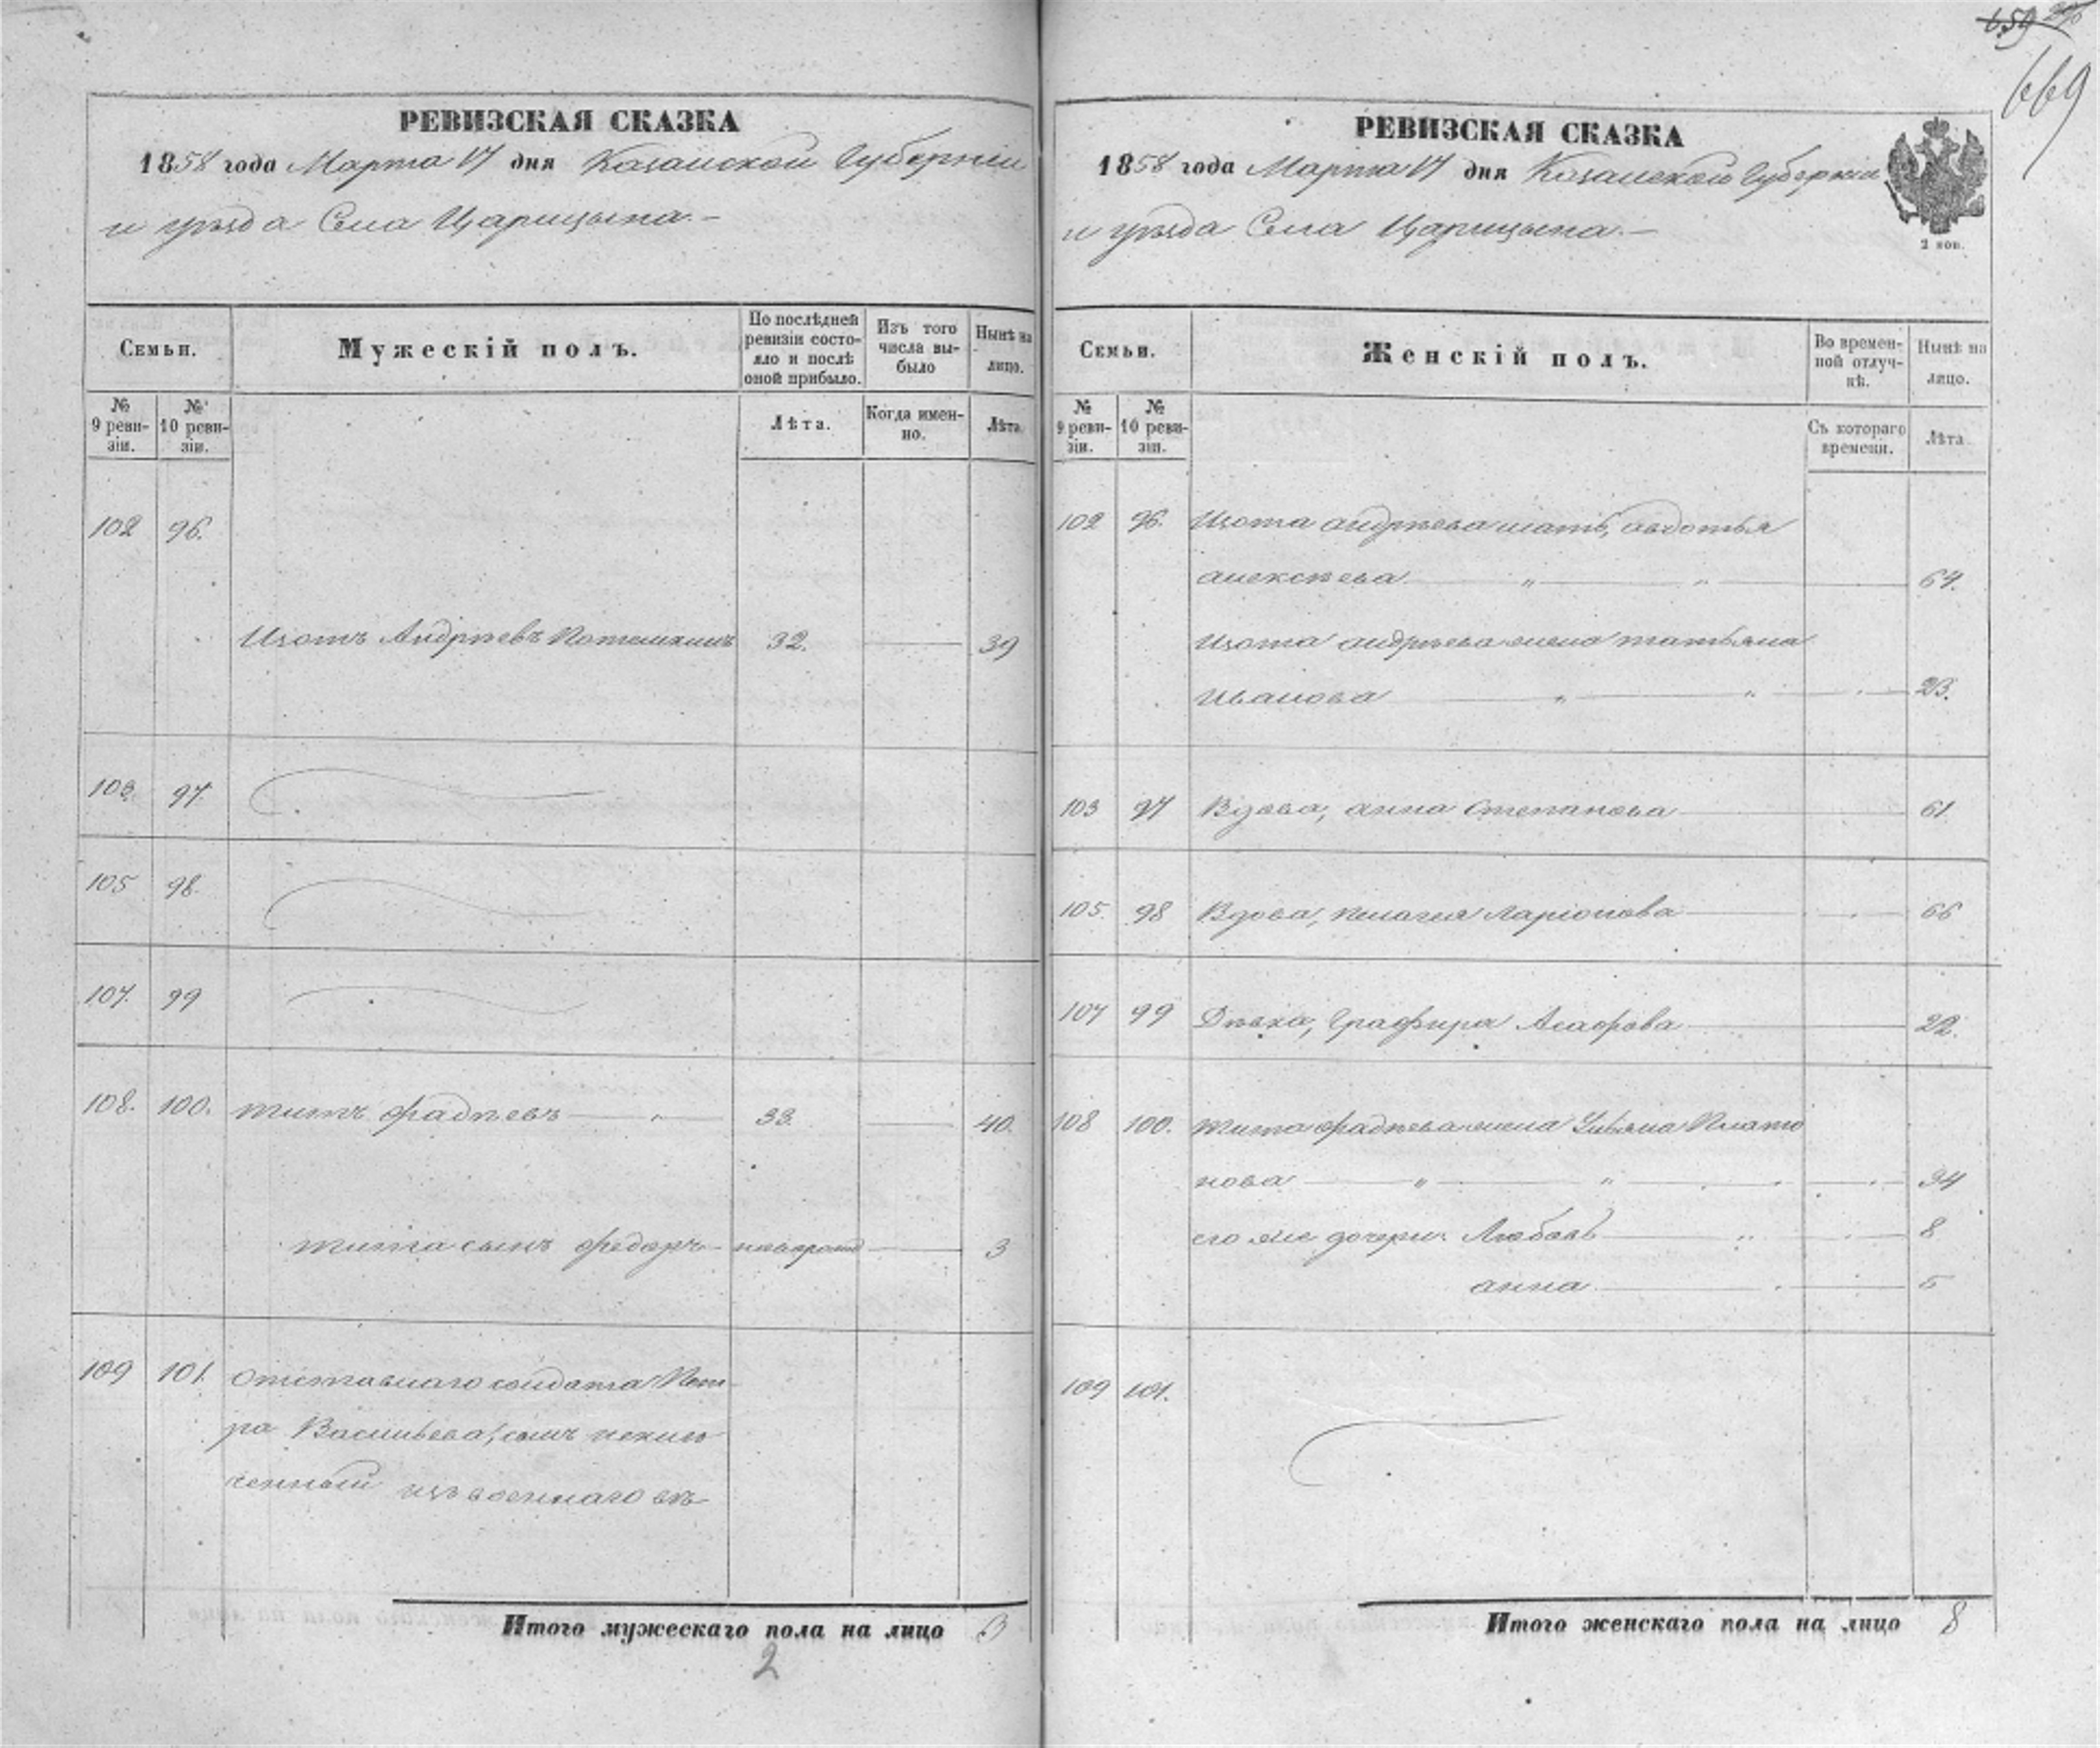 РЕВИЗСКАЯ СКАЗКА
1858 года Марта 17 дня Казанской Губерніи
и уѣзда Села Царицына.–
Семьи.
Мужескій полъ.
По послѣдней ревизіи состояло и послѣ оной прибыло.
Изъ того числа выбыло
Нынѣ на лицо.
№ 9 ревизіи.
№ 10 ревизіи.
Лѣта.
Когда именно.
Лѣта.
102 96.
Изотъ Андрѣевъ Потемкинъ 32. 39
103. 97.
105 98.
107. 99
108. 100. Титъ Фадѣевъ 33. 40.
Тита сынъ Федоръ новорожд 3
109 101. Отставнаго солдата Пет-
ра Васильева, сынъ исклю
ченный изъ военнаго вѣ-
Итого мужескаго пола на лицо 3
2
659
669
РЕВИЗСКАЯ СКАЗКА
1858 года Марта 17 дня Казанской Губерніи
и уѣзда Села Царицына.–
2 коп.
Семьи.
Женскій полъ.
Во временной отлучкѣ.
Нынѣ на лицо.
№ 9 ревизіи.
№ 10 ревизіи.
Съ котораго времени.
Лѣта
102 96. Изота Андрѣева мать, Авдотья
Алексѣева 64.
Изота Андрѣева жена Татьяна
Иванова 23.
103 97 Вдова, Анна Степанова 61
105. 98 Вдова, Пелагея Ларіонова 66
107 99 Дѣвка, Графира Асафова 22.
108 100. Тита Фадѣева жена Ульяна Плато
нова 34
его же дочери: Любовь 8
Анна 5
109 101.
Итого женскаго пола на лицо 8